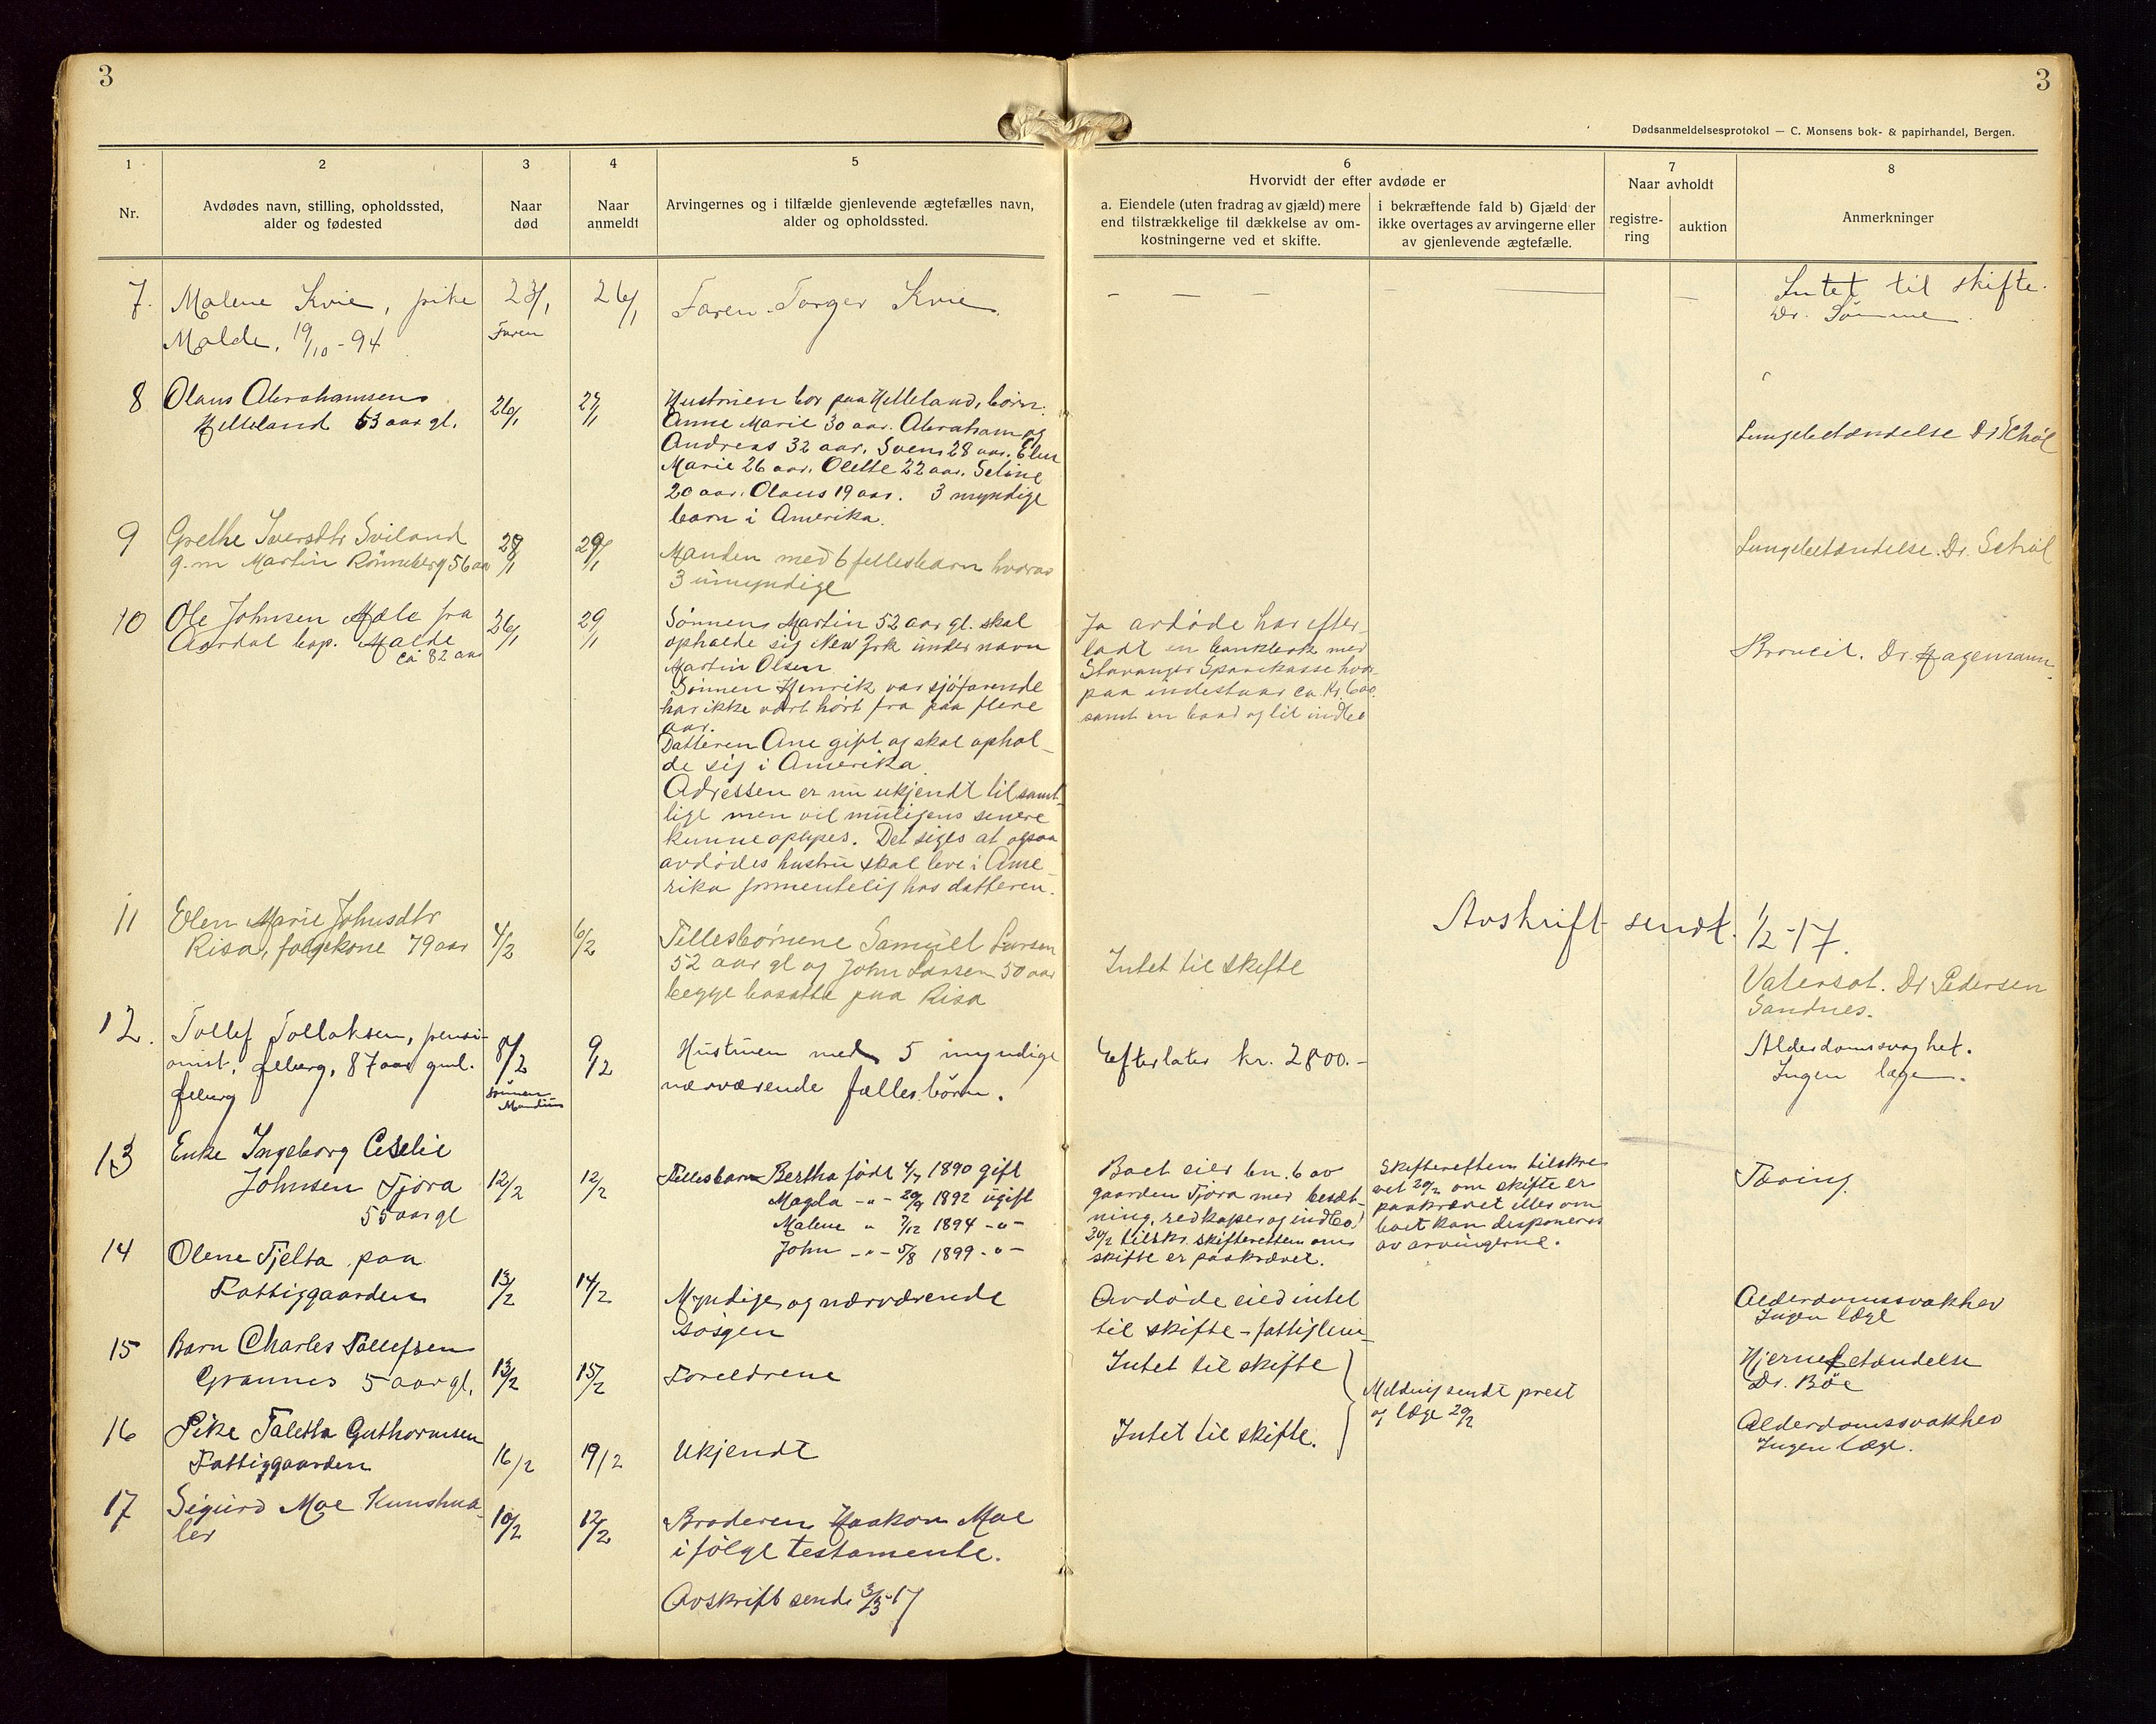 3
3
Dødsanmeldelsesprotokol — C. Monsens bok- & papirhandel, Bergen.
1
2
3
4
5
6
7
8
Nr.
Avdødes navn, stilling, opholdssted,
alder og fødested
Naar
død
Naar
anmeldt
Arvingernes og i tilfælde gjenlevende ægtefælles navn,
alder og opholdssted.
Hvorvidt der efter avdøde er
a. Eiendele (uten fradrag av gjæld) mere
end tilstrækkelige til dækkelse av om-
kostningerne ved et skifte.
i bekræftende fald b) Gjæld der
ikke overtages av arvingerne eller
av gjenlevende ægtefælle.
Naar avholdt
registre-
ring
auktion
Anmerkninger
7. Malene Kvie, pike
Malde, 19/10 - 94
23/1
Faren
26/1
Faren Torger Kvie.
— — — — — —
Intet til skifte.
Dr. Sømme
8 Olaus Abrahamsen
Helleland 53 aar gl.
26/1
27/1
Hustruen bor paa Helleland, børn:
Anne Marie 30 aar. Abraham og
Andreas 32 aar. Sven 28 aar. Elen
Marie 26 aar. Olette 22 aar. Seline
20 aar. Olaus 19 aar. 3 myndige
barn i Amerika.
Lungebetændelse Dr Schøl
9 Grethe Iversdtr Sviland
g.m Martin Rønneberg 56 aar
28/1
29/1
Manden med 6 fellesbarn hvorav
3 umyndige
Lungebetændelse. Dr. Schøl
10 Ole Johnsen Mæle fra
Aardal bop. Malde
ca 82 aar
26/1
29/1
Sønnen Martin 52 aar gl. skal
opholde sig New York under navn
Martin Olsen
Sønnen Henrik var sjøfarende
har ikke vært hørt fra paa flere
aar.
Datteren Ane gift og skal ophol-
de sig i Amerika.
Adressen er nu ukjendt til samt-
lige men vil muligens senere
kunne opgipes. Det siges at ogsaa
avdødes hustru skal leve i Ame-
rika formentelig hos datteren.
Ja avdøde har efter-
ladt en bankbok med
Stavanger Sparekasse hvor-
paa indestaar ca. Kr. 600.
samt en baad og lit indbo
Broncit. Dr. Hagemann.
Avskrift sendt. 1/2-17.
11 Elen Marie Johnsdtr
Risa, folgekone 79 aar
4/2
6/2
Fellesbørnene Samuel Larsen
52 aar gl og John Larsen 50 aar
begge bosatte paa Risa
Intet til skifte
Vatersot. Dr Pedersen
Sandnes.
12. Tollef Tollaksen, pensi-
onist, Jelberg, 87 aar gml.
Jelberg
8/2
sønnen
9/12
Hustruen med 5 myndige
nærværende fælles børn.
Efterlater kr. 2800.-
Alderdomsvaghet.
Ingen læge.
13 Enke Ingeborg Ceselie
Johnsen Tjora
55 aar gl
12/2
12/2
Fellesbarn Bertha født 4/7 1890 gift
Magda -"- 29/9 1892 ugift
Malene " 7/12 1894 -"-
John -"- 5/8 1899 -"-
Boet eier bn. 6 av
gaarden Tjora med besæt-
ning, redkaper og indbo.
20/2 tilskr. skifteretten om
skifte er paakrævet.
Skifteretten tilskre-
vet 20/2 om skifte er
paakrævet eller om
boet kan desponeres
av arvingerne.
Tæring.
14 Olene Tjelta paa
Fattiggaarden
13/2
14/2
Myndige og nærværende
søsgen
Avdøde eied intet
til skifte - fattiglem-
Alderdomssvakhed
Ingen læge
15 Barn Charles Tollefsen
Grannes 5 aar gl.
13/2
15/2
Foreldrene
Intet til skifte
Melding sendt prest
og læge 20/2
Hjernebetændelse
Dr. Bøe
16 Pike Taletta Guthormsen
Fattiggaarden
16/2
19/2
Ukjendt
Intet til skifte.
Alderdomssvakhed
Ingen læge.
17 Sigurd Moe Kunstma-
ler
10/2
12/2
Broderen Haakon Moe
i følge testamente.
Avskrift sendt 3/3-17